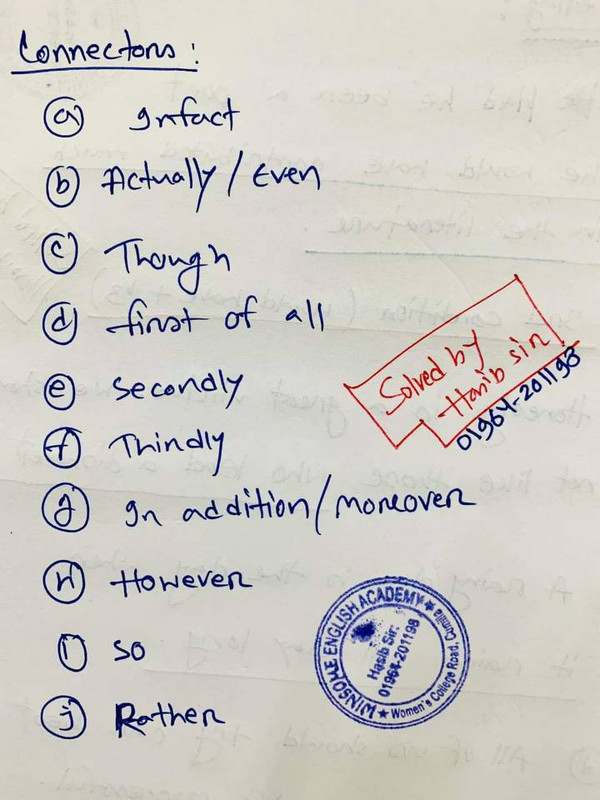 Connectors:
(a) Infact
(b) Actually / Even
(c) Though
(d) first of all
(e) Secondly
(f) Thirdly
(g) In addition / moreover
(h) However
(i) so
(j) Rather
Solved by
Hasib sir
01964-201198
WINSOME ENGLISH ACADEMY
Hasib Sir:
01964-201198
Women's College Road, Cumilla